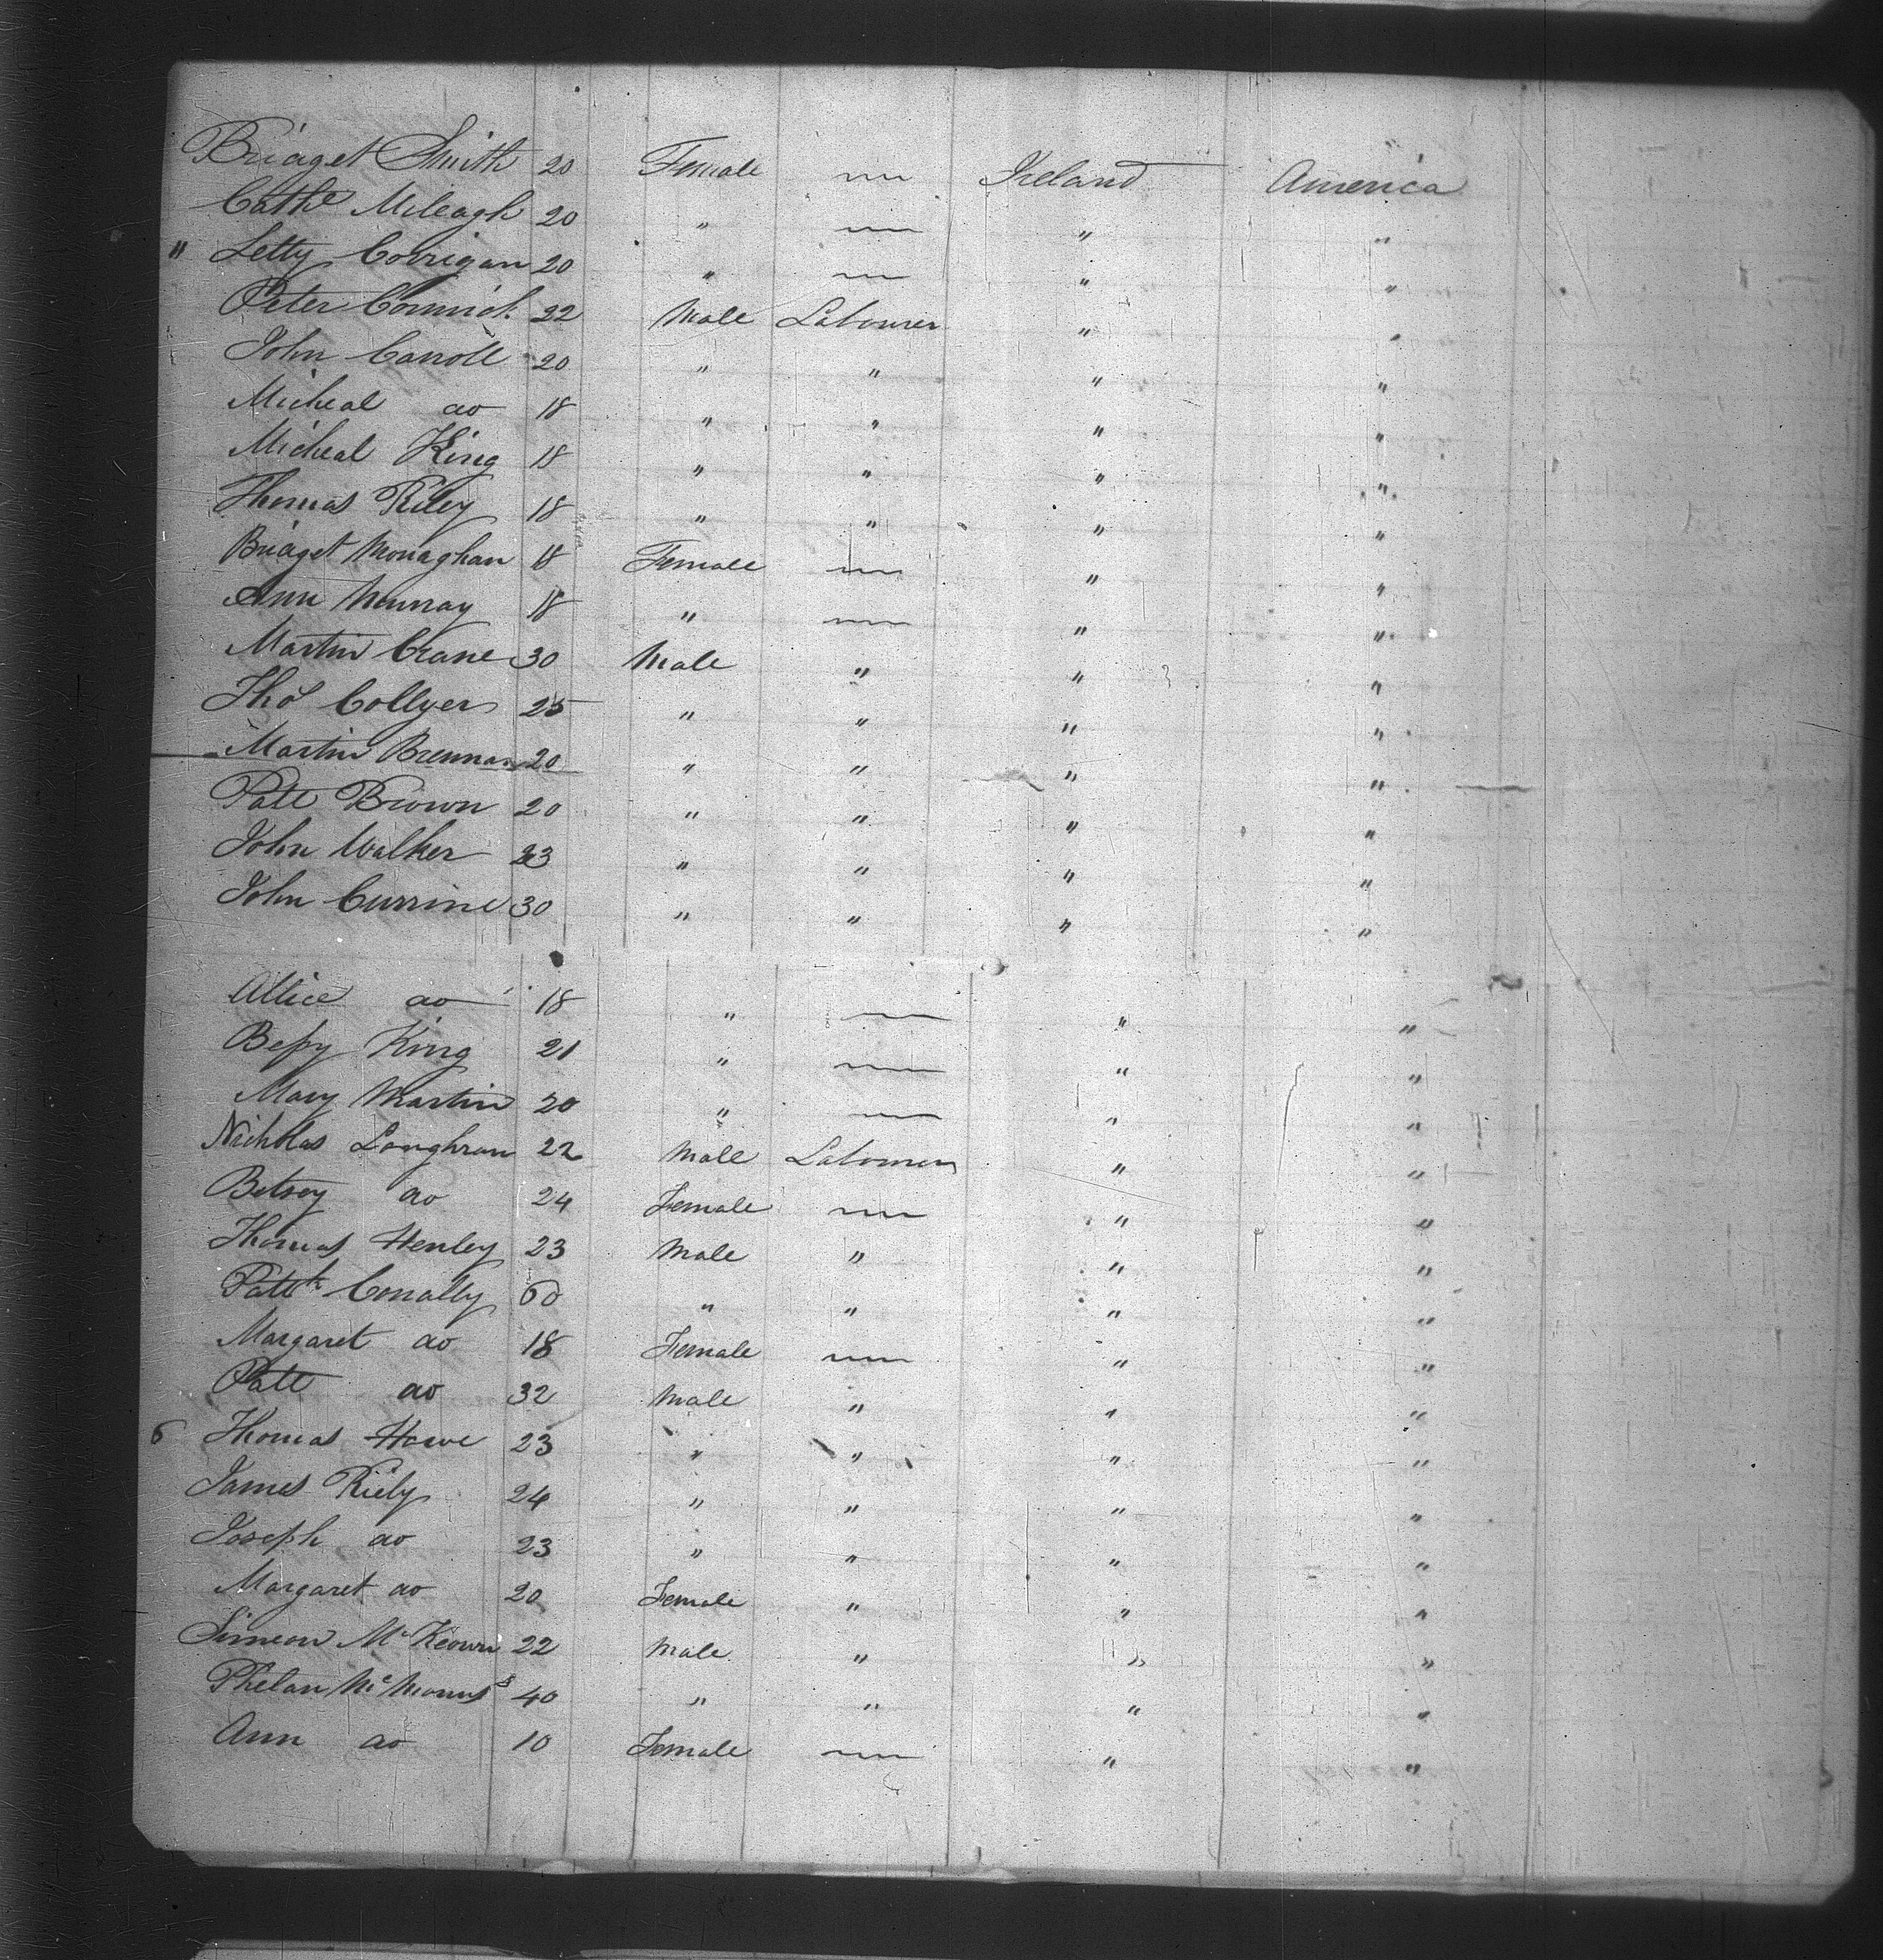 Bridget Smith 20 Female — Ireland America
Cathe Mileagh 20 " — " "
" Letty Corrigan 20 " — " "
Peter Cormick 22 Male Labourer " "
John Carroll 20 " " " "
Micheal do 18 " " " "
Micheal King 18 " " " "
Thomas Riley 18 " " " "
Bridget Monaghan 18 Female — " "
Ann Murray 18 " — " "
Martin Crane 30 Male " " "
Thos Collyer 25 " " " "
Martin Brennan 20 " " " "
Patt Brown 20 " " " "
John Walker 23 " " " "
John Currine 30 " " " "
Allice do 18 " — " "
Bessy King 21 " — " "
Mary Martin 20 " — " "
Nicholas Loughran 22 Male Labourer " "
Betsey do 24 Female — " "
Thomas Henley 23 Male " " "
Pattk Conally 60 " " " "
Margaret do 18 Female — " "
Patt do 32 Male " " "
6 Thomas Howe 23 " " " "
James Riely 24 " " " "
Joseph do 23 " " " "
Margaret do 20 Female " " "
Simeon McKeown 22 Male " " "
Phelan McManus 40 " " " "
Ann do 10 Female — " "